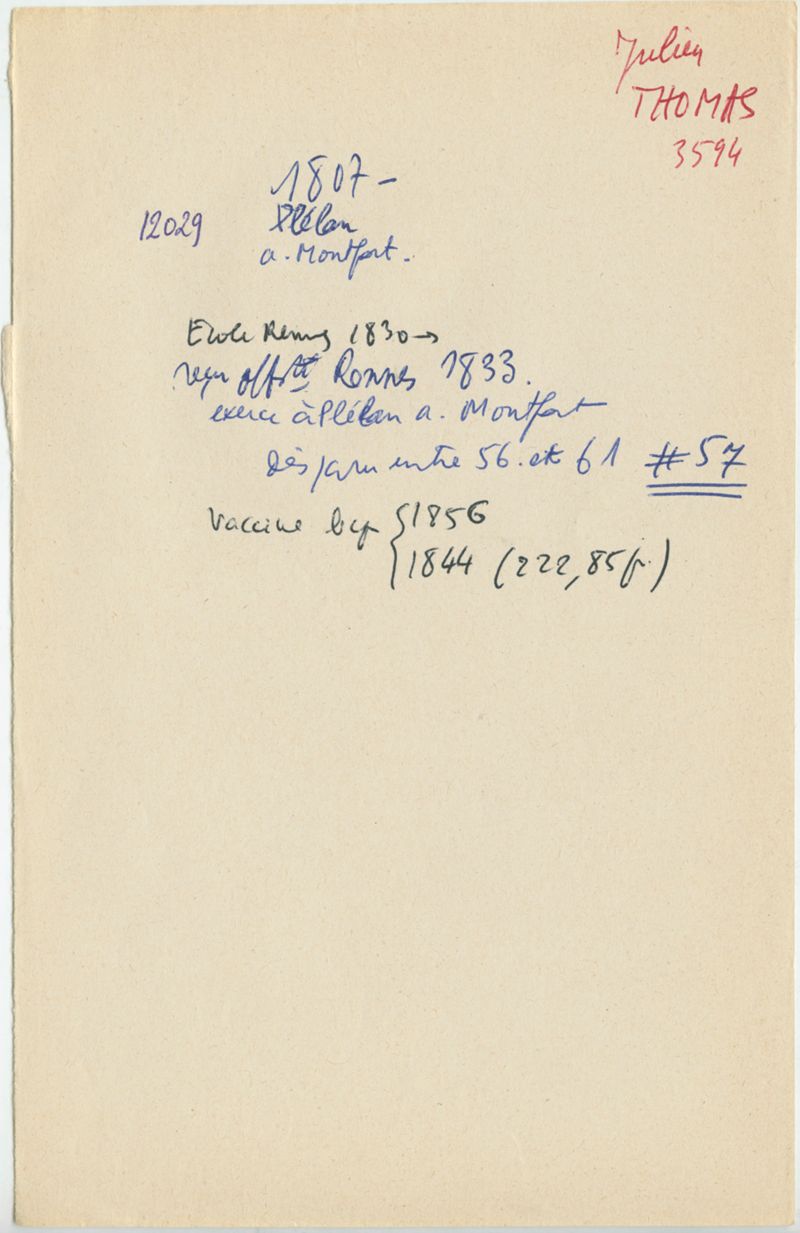 Julien
THOMAS
3594
1807 -
12029 Plélan
a. Montfort.
Ecole Rennes 1830 →
reçu off. Rennes 1833.
exerce à Plélan a. Montfort
Disparu entre 56 et 61 # 57
Vaccine bcp { 1856
1844 (222,85 fr.)